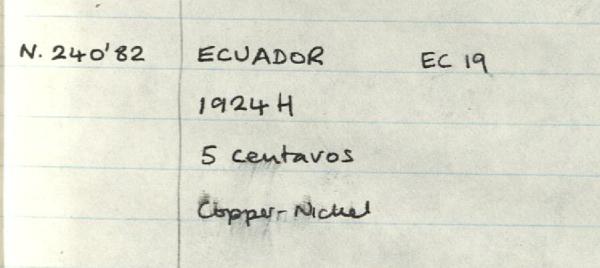 N. 240'82 ECUADOR EC 19
1924 H
5 centavos
Copper-Nickel